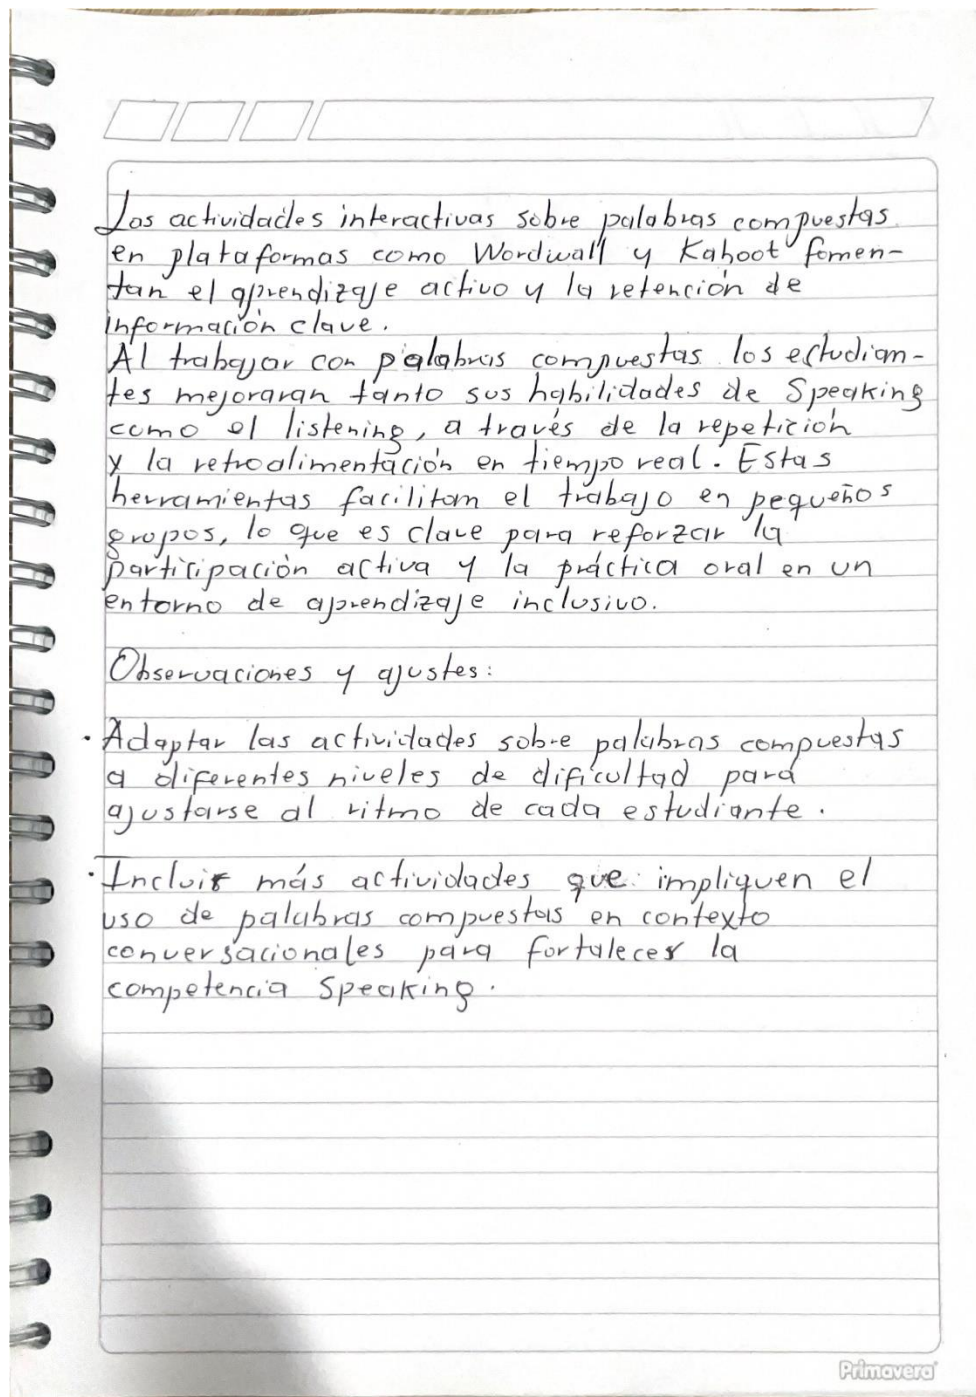 Las actividades interactivas sobre palabras compuestas
en plataformas como Wordwall y Kahoot fomen-
tan el aprendizaje activo y la retención de
información clave.
Al trabajar con palabras compuestas los estudian-
tes mejoraran tanto sus habilidades de Speaking
como el listening, a través de la repetición
y la retroalimentación en tiempo real. Estas
herramientas facilitan el trabajo en pequeños
grupos, lo que es clave para reforzar la
participación activa y la práctica oral en un
entorno de aprendizaje inclusivo.
Observaciones y ajustes:
· Adaptar las actividades sobre palabras compuestas
a diferentes niveles de dificultad para
ajustarse al ritmo de cada estudiante.
· Incluir más actividades que impliquen el
uso de palabras compuestas en contexto
conversacionales para fortalecer la
competencia Speaking.
Primavera